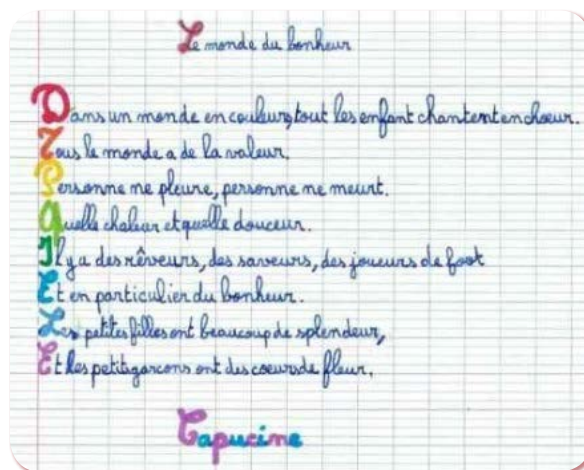 Le monde du bonheur
Dans un monde en couleur, tout les enfant chantent en choeur.
Tous le monde a de la valeur.
Personne ne pleure, personne ne meurt.
Quelle chaleur et quelle douceur.
Il y a des rêveurs, des saveurs, des joueurs de foot
Et en particulier du bonheur.
Les petites filles ont beaucoup de splendeur,
Et les petits garcons ont des coeurs de fleur.
Capucine